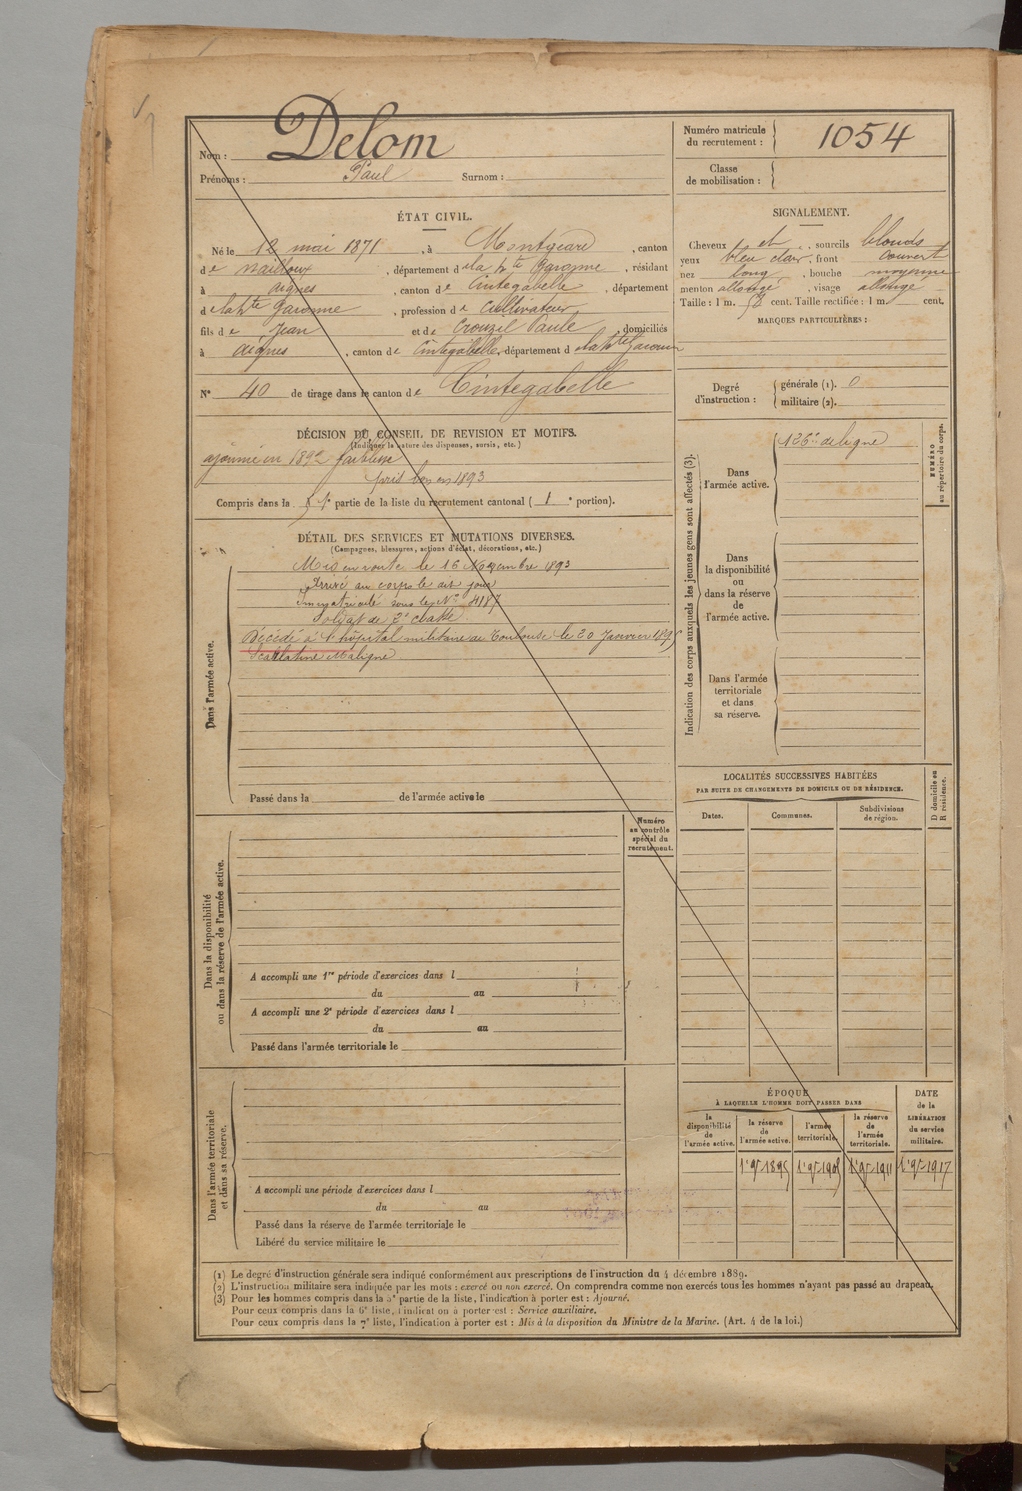 Nom : Delom
Prénoms : Paul Surnom :
Numéro matricule du recrutement : 1054
Classe de mobilisation :
ÉTAT CIVIL.
Né le 12 mai 1871, à Montgeard, canton
de Nailloux, département de la Hte Garonne, résidant
à Aignes, canton de Cintegabelle, département
de la Hte Garonne, profession de Cultivateur
fils de Jean et de Crouzil Paule, domiciliés
à Aignes, canton de Cintegabelle, département de la Hte Garonne
N° 40 de tirage dans le canton de Cintegabelle
SIGNALEMENT.
Cheveux et, sourcils blonds
yeux bleu clair, front couvert
nez long, bouche moyenne
menton allongé, visage allongé
Taille : 1 m. cent. Taille rectifiée : 1 m. cent.
MARQUES PARTICULIÈRES :
Degré d'instruction : générale (1). 0
militaire (2).
DÉCISION DU CONSEIL DE REVISION ET MOTIFS.
(Indiquer la nature des dispenses, sursis, etc.)
ajourné en 1892 faiblesse
pris bon en 1893
Compris dans la partie de la liste du recrutement cantonal ( 1 e portion).
DÉTAIL DES SERVICES ET MUTATIONS DIVERSES.
(Campagnes, blessures, actions d'éclat, décorations, etc.)
Dans l'armée active.
Mis en route le 16 Novembre 1893
Arrivé au corps le dit jour
Immatriculé sous le N° 4187
Soldat de 2e classe.
Décédé à l'hôpital militaire de Toulouse le 20 Janvier 1895
Scarlatine Maligne.
Passé dans la de l'armée active le
Indication des corps auxquels les jeunes gens sont affectés (3).
Dans l'armée active.
126e de ligne
NUMÉRO au répertoire du corps.
Dans la disponibilité ou dans la réserve de l'armée active.
Dans l'armée territoriale et dans sa réserve.
LOCALITÉS SUCCESSIVES HABITÉES
PAR SUITE DE CHANGEMENTS DE DOMICILE OU DE RÉSIDENCE.
Dates. Communes. Subdivisions de région.
D domicile ou R résidence.
Dans la disponibilité ou dans la réserve de l'armée active.
Numéro au contrôle spécial du recrutement.
A accompli une 1re période d'exercices dans l
du au
A accompli une 2e période d'exercices dans l
du au
Passé dans l'armée territoriale le
Dans l'armée territoriale et dans sa réserve.
A accompli une période d'exercices dans l
du au
Passé dans la réserve de l'armée territoriale le
Libéré du service militaire le
ÉPOQUE
À LAQUELLE L'HOMME DOIT PASSER DANS
la disponibilité de l'armée active. la réserve de l'armée active. l'armée territoriale. la réserve de l'armée territoriale.
DATE de la LIBÉRATION du service militaire.
(1) Le degré d'instruction générale sera indiqué conformément aux prescriptions de l'instruction du 4 décembre 1889.
(2) L'instruction militaire sera indiquée par les mots : exercé ou non exercé. On comprendra comme non exercés tous les hommes n'ayant pas passé au drapeau.
(3) Pour les hommes compris dans la 5e partie de la liste, l'indication à porter est : Ajourné.
Pour ceux compris dans la 6e liste, l'indication à porter est : Service auxiliaire.
Pour ceux compris dans la 7e liste, l'indication à porter est : Mis à la disposition du Ministre de la Marine. (Art. 4 de la loi.)